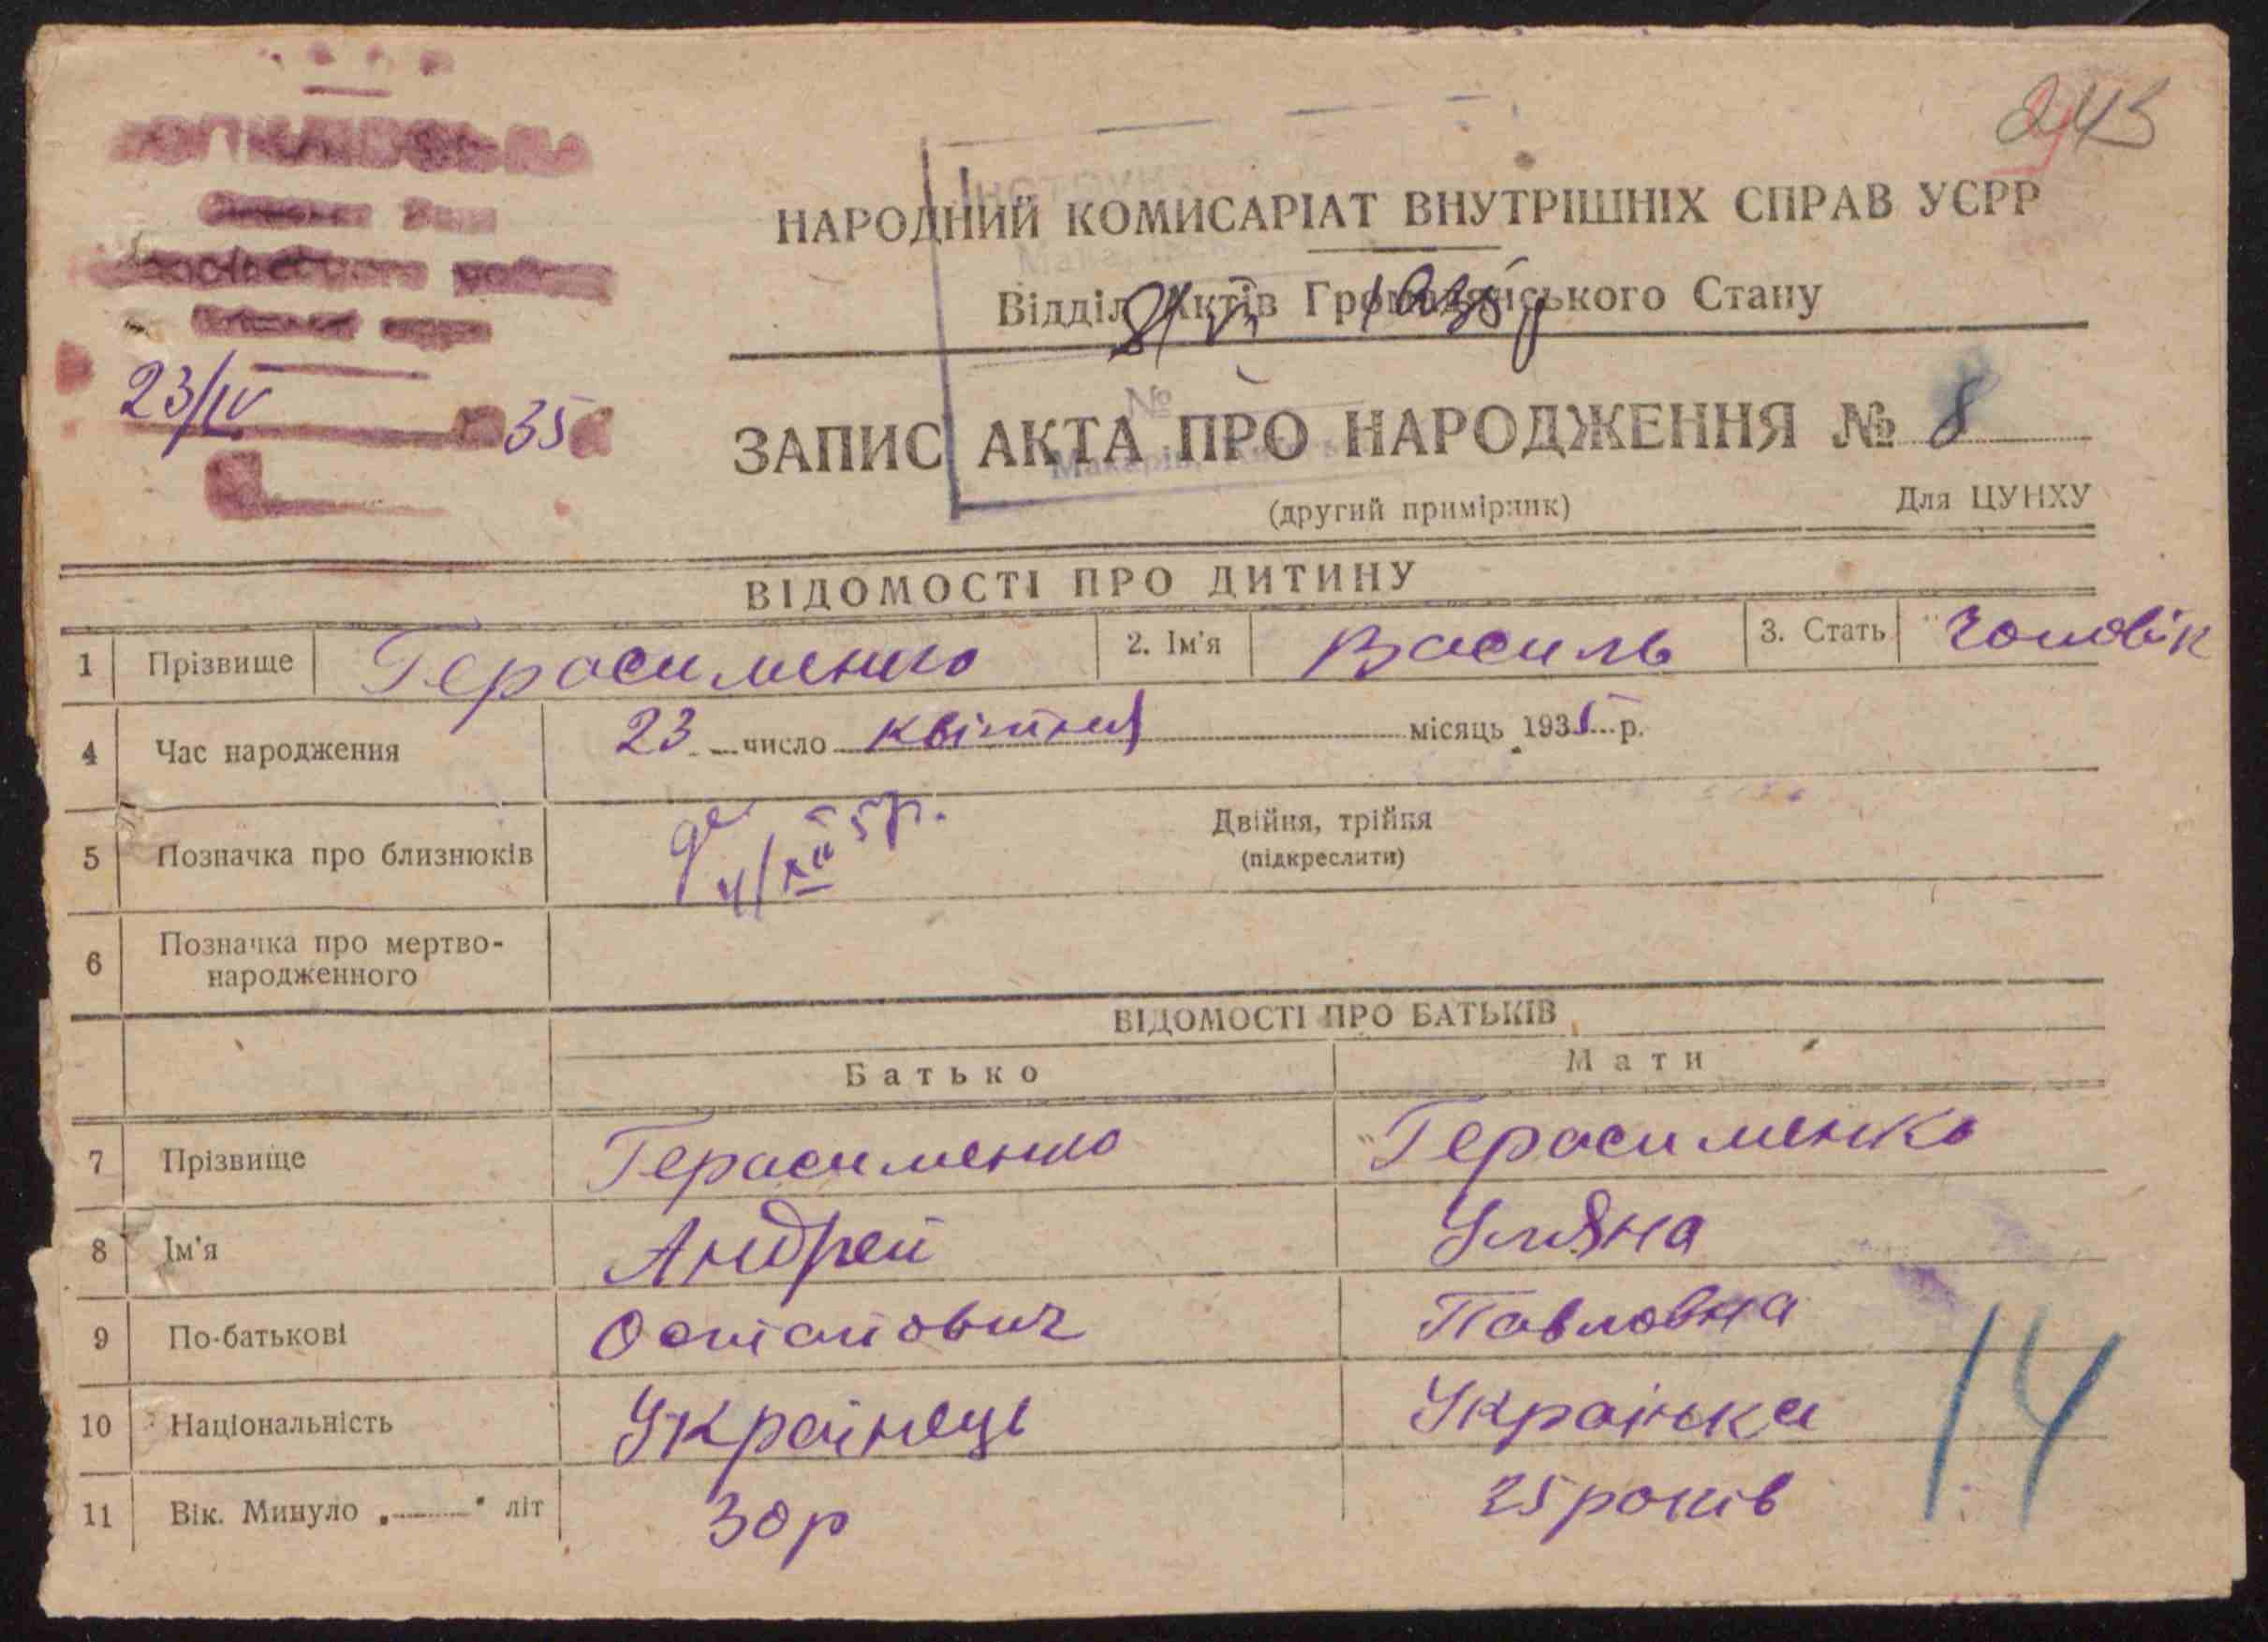 243
НАРОДНИЙ КОМИСАРІАТ ВНУТРІШНІХ СПРАВ УСРР
Відділ Актів Громадянського Стану
8/ 1935 р
23/IV 35
№
ЗАПИС АКТА ПРО НАРОДЖЕННЯ № 8
(другий примірник)
Для ЦУНХУ
ВІДОМОСТІ ПРО ДИТИНУ
1 Прізвище Герасименко 2. Ім'я Василь 3. Стать Чоловік
4 Час народження 23 число квітня місяць 1935 р.
5 Позначка про близнюків 4/XII 5р. Двійня, трійня
(підкреслити)
6 Позначка про мертво-
народженного
ВІДОМОСТІ ПРО БАТЬКІВ
Батько Мати
7 Прізвище Герасименко Герасименко
8 Ім'я Андрей Уляна
9 По-батькові Остапович Павловна
10 Національність Українець Українка
11 Вік. Минуло „ " літ 30р 25 років
14